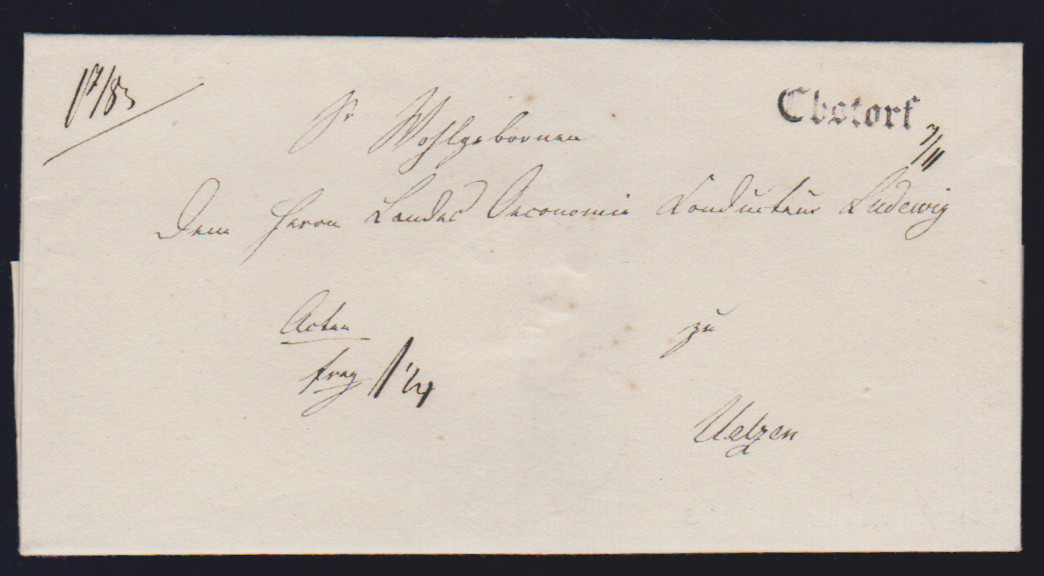 Ebstorf
7/11
Sr Wohlgebornen
Dem Herrn Landes Oeconomie Conducteur Ludewig
Acten
zu
frey 1 1/4
Uelzen